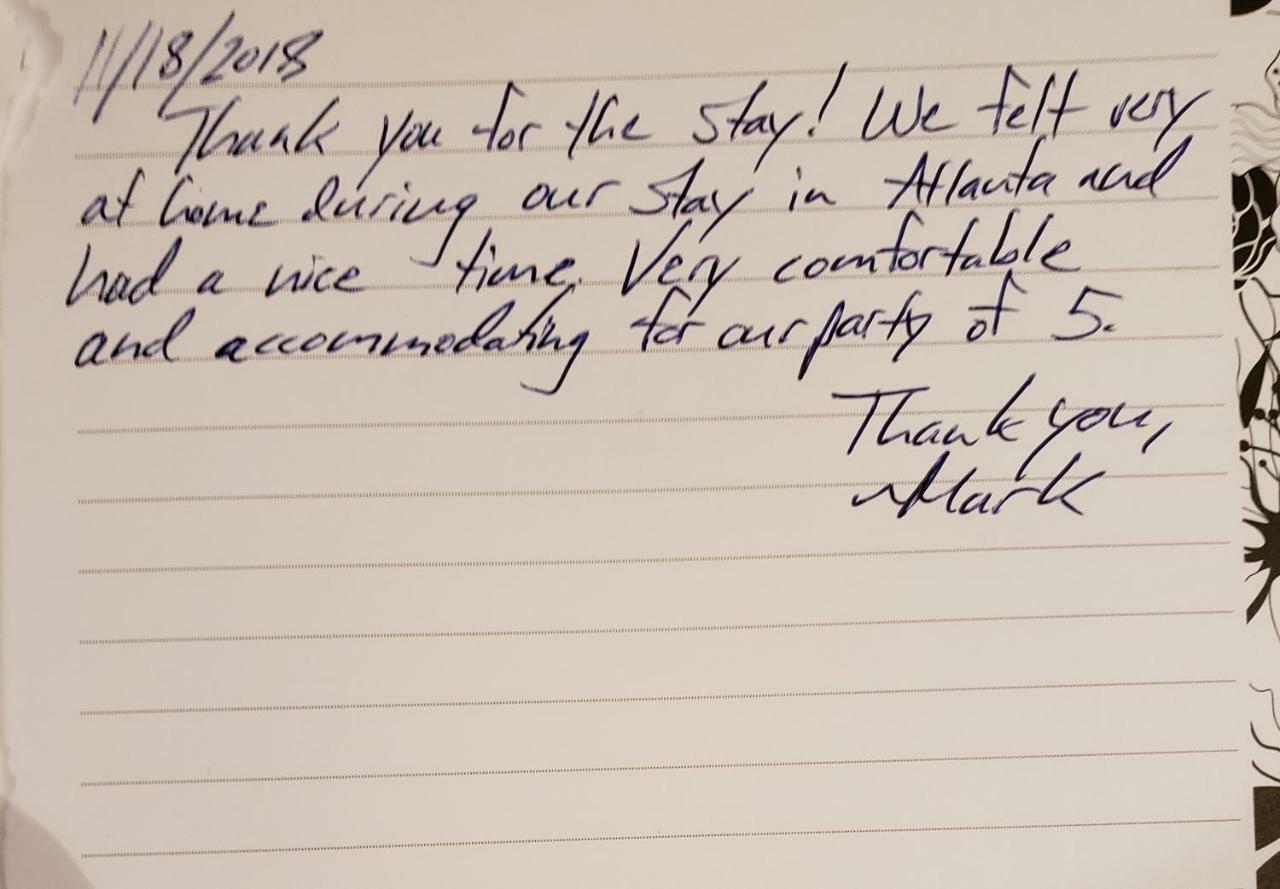 11/18/2018
Thank you for the stay! We felt very
at home during our stay in Atlanta and
had a nice time. Very comfortable
and accommodating for our party of 5.
Thank you,
Mark